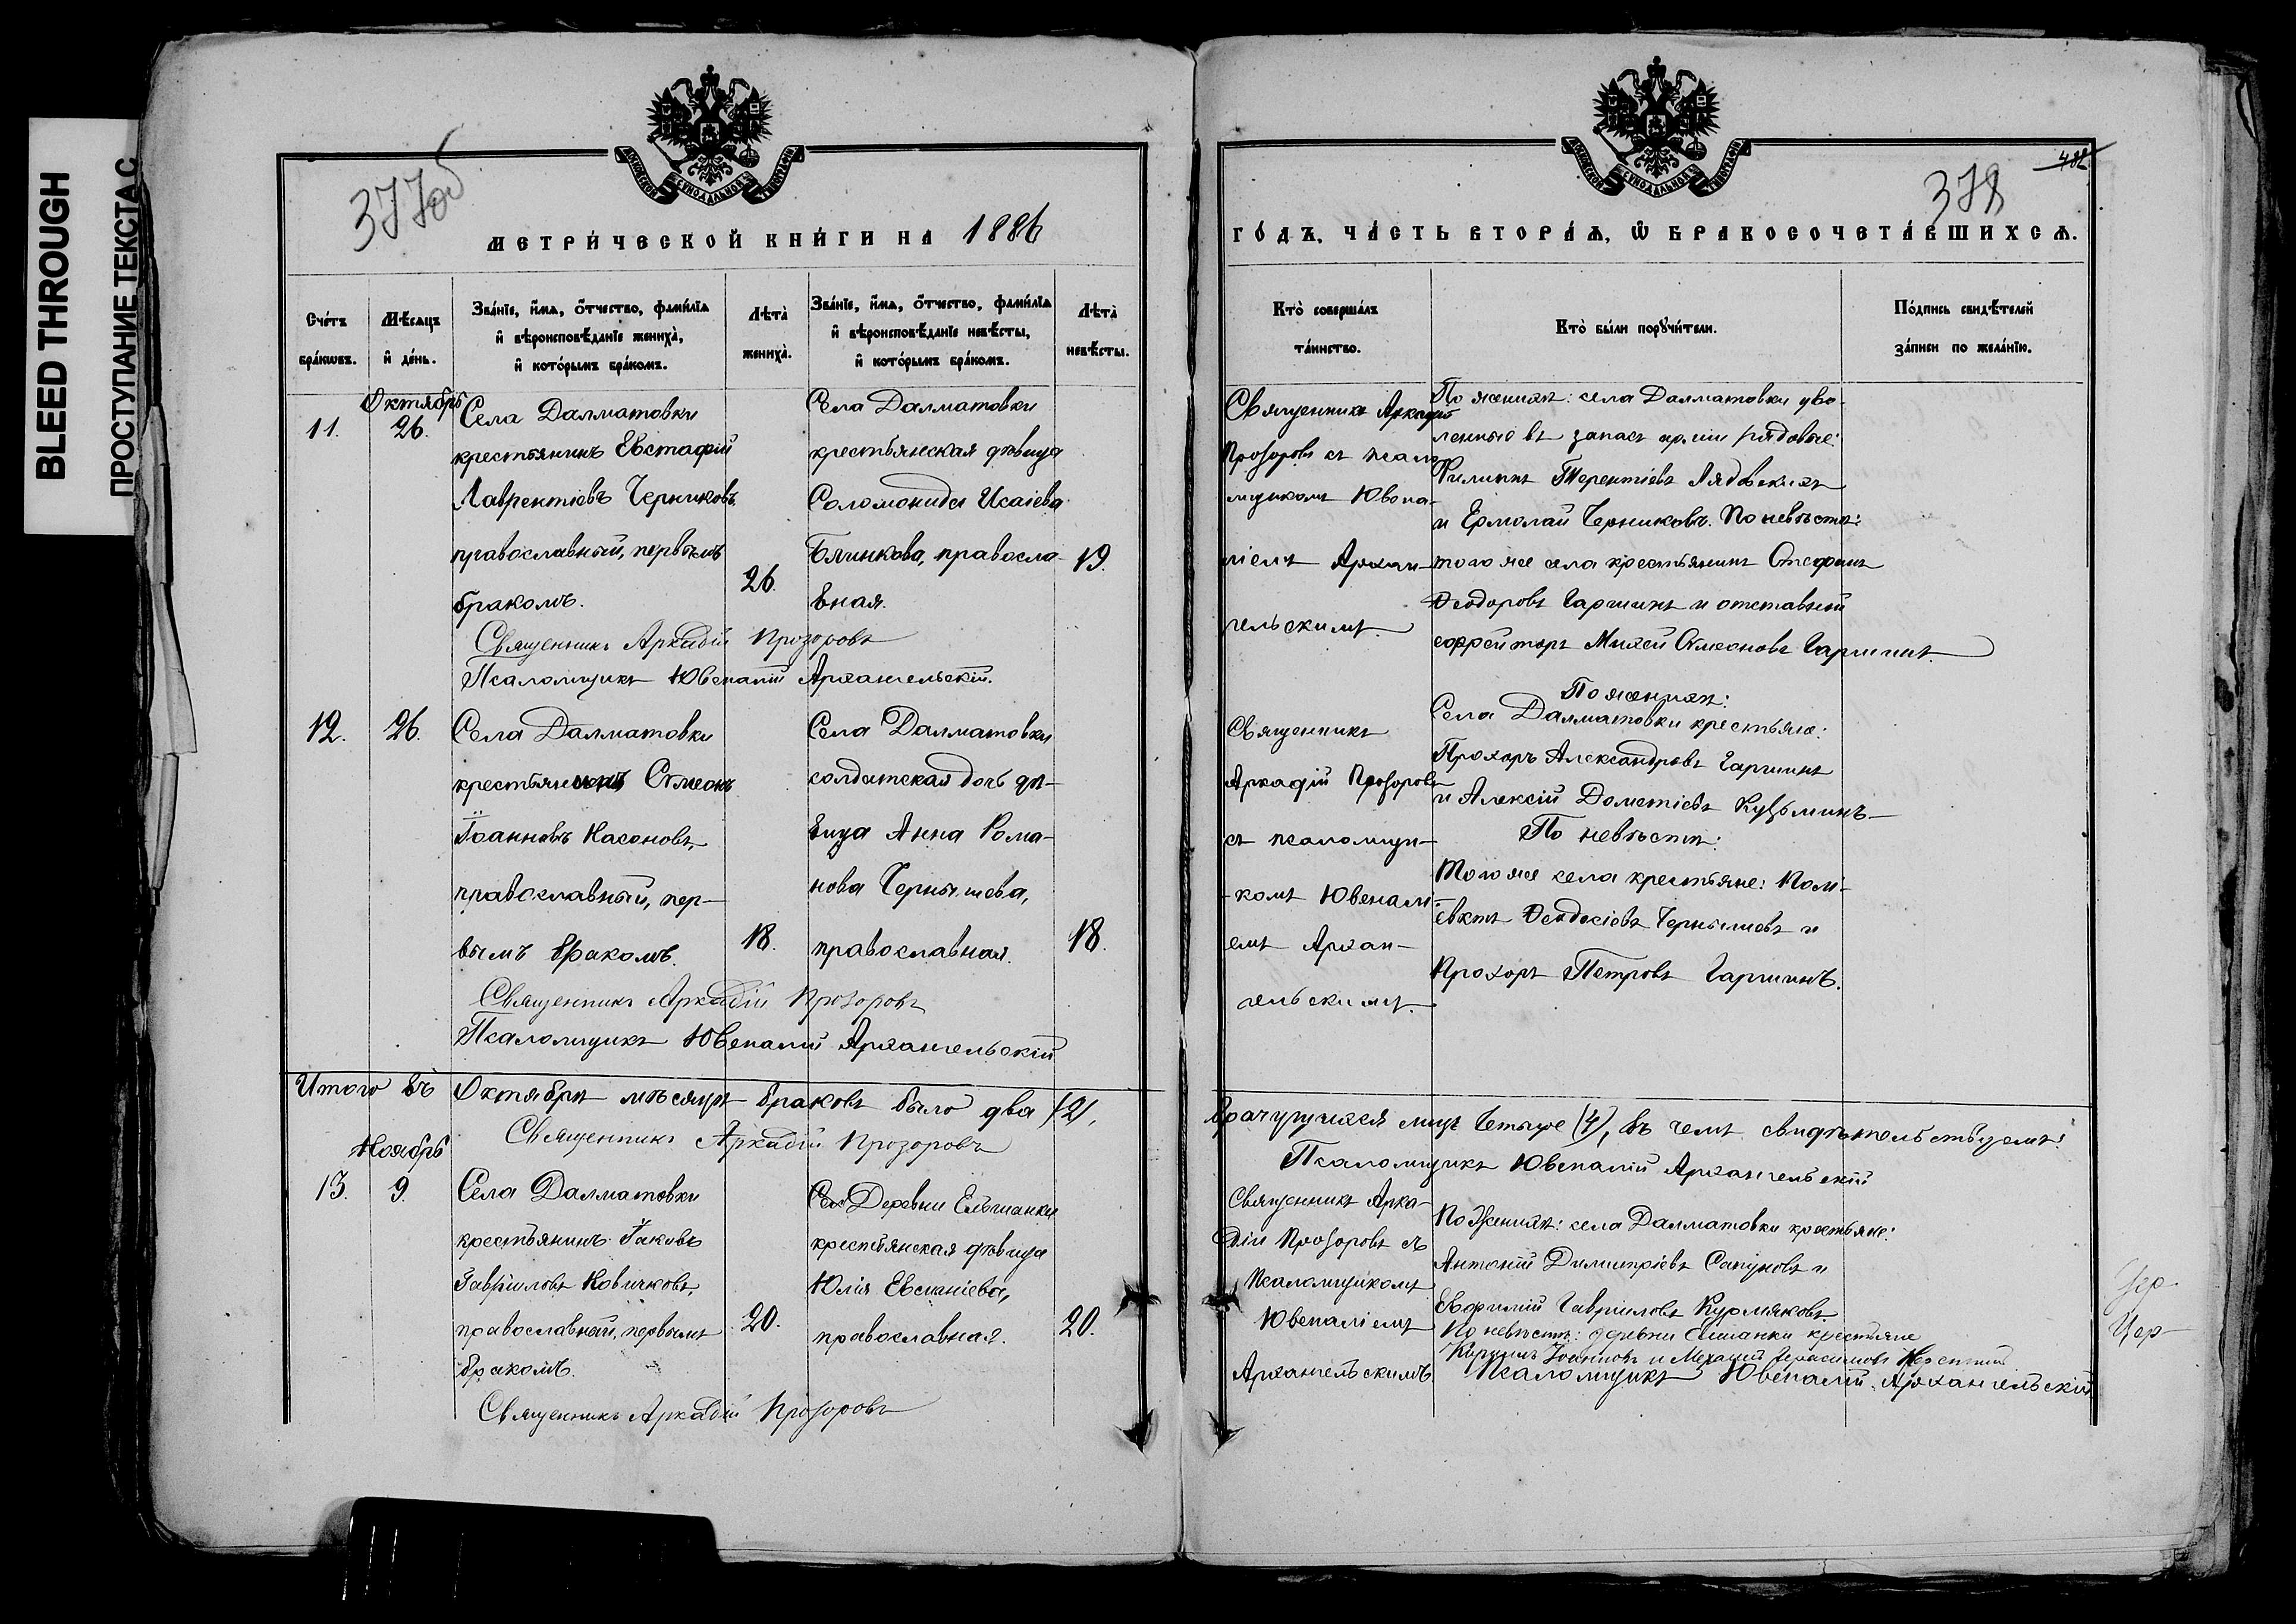 BLEED THROUGH
ПРОСТУПАНИЕ ТЕКСТА С
377об
МЕТРИ́ЧЕСКОЙ КНИ́ГИ НА 1886
Сче́тъ бра́кѡвъ.
Мѣ́сяцъ и҆ де́нь.
Зва́нїе, и҆́мѧ, ѻ҆́тчество, фами́лїѧ
и҆ вѣроисповѣ́данїе жениха̀,
и҆ кото́рымъ бра́комъ.
Лѣта̀ жениха̀.
Зва́нїе, и҆́мѧ, ѻ҆́тчество, фами́лїѧ
и҆ вѣроисповѣ́данїе невѣ́сты,
и҆ кото́рымъ бра́комъ.
Лѣта̀ невѣ́сты.
Октябрь
11.
26.
Села Далматовки
крестьянинъ Евстафій
Лаврентіевъ Черниковъ,
православный, первымъ
бракомъ.
26.
Села Далматовки
крестьянская дѣвица
Соломонида Исаіева
Блинкова, правосла-
вная.
19.
Священникъ Аркадій Прозоровъ
Псаломщикъ Ювеналій Архангельскій.
12.
26.
Села Далматовки
крестьянинъ Сѵмеонъ
Іоанновъ Насоновъ,
православный, пер-
вымъ бракомъ.
18.
Села Далматовки
солдатская дочь дѣ-
вица Анна Рома-
нова Чернышева,
православная.
18.
Священникъ Аркадій Прозоровъ
Псаломщикъ Ювеналій Архангельскій
Итого въ Октябрѣ мѣсяцѣ браковъ было два (2),
Священникъ Аркадій Прозоровъ
Ноябрь
13.
9.
Села Далматовки
крестьянинъ Іаковъ
Гавріиловъ Новичковъ,
православный, первымъ
бракомъ.
20.
Деревни
крестьянская дѣвица
Юлія
православная.
20.
Священникъ Аркадій Прозоровъ
482
378
ГО́ДЪ, ЧА́СТЬ ВТОРА́Ѧ, Ѡ҆ БРАКОСОЧЕТА́ВШИХСѦ.
Кто̀ соверша́лъ
та́инство.
Кто̀ бы́ли порꙋчи́тели.
По́дпись свидѣ́телей
за́писи по жела́нїю.
Священникъ Аркадій
Прозоровъ съ псало-
мщикомъ Ювена-
ліемъ Архан-
гельскимъ.
По женихѣ: села Далматовки уво-
ленные въ запасъ арміи рядовые:
Филиппъ Терентіевъ Лядовскихъ
и Ермолай Черниковъ. По невѣстѣ:
того же села крестьянинъ Стефанъ
Ѳеодоровъ Гаршинъ и отставный
ефрейторъ Михей Сѵмеоновъ Гаршинъ.
Священникъ
Аркадій Прозоровъ
съ псаломщи-
-комъ Ювеналі-
емъ Архан-
гельскимъ.
По женихѣ:
Села Далматовки крестьяне:
Прохоръ Александровъ Гаршинъ
и Алексій Дометіевъ Кузьминъ
По невѣстѣ:
Того же села крестьяне: Полі-
евктъ Ѳеодосіевъ Чернышевъ и
Прохоръ Петровъ Гаршинъ.
брачущихся лицъ четыре (4), въ чемъ свидѣтельствуемъ:
Псаломщикъ Ювеналій Архангельскій
Священникъ Арка-
дій Прозоровъ съ
Псаломщикомъ
Ювеналіемъ
Архангельскимъ
По женихѣ: села Далматовки крестьяне:
Антоній Димитріевъ Сапуновъ и
Евфимій Гавріиловъ Курмяковъ.
По невѣстѣ: деревни крестьяне
Іоанновъ и Герасимовъ
Псаломщикъ Ювеналій Архангельскій